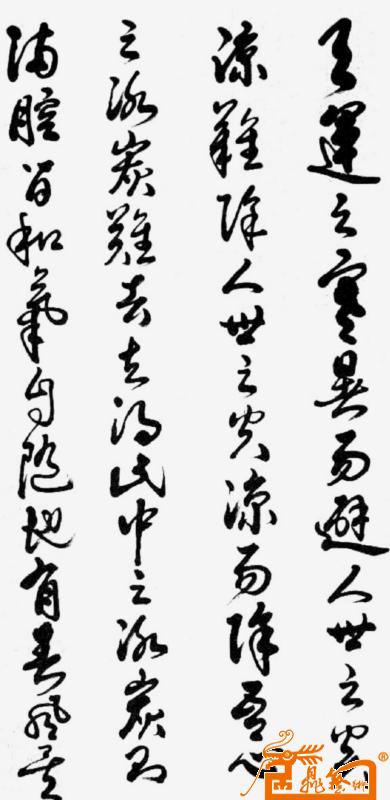 天運之寒暑易避人世之炎
涼難除人世之炎涼易除吾心
之冰炭難去去得此中之冰炭則
滿腔皆和氣自隨地有春風矣